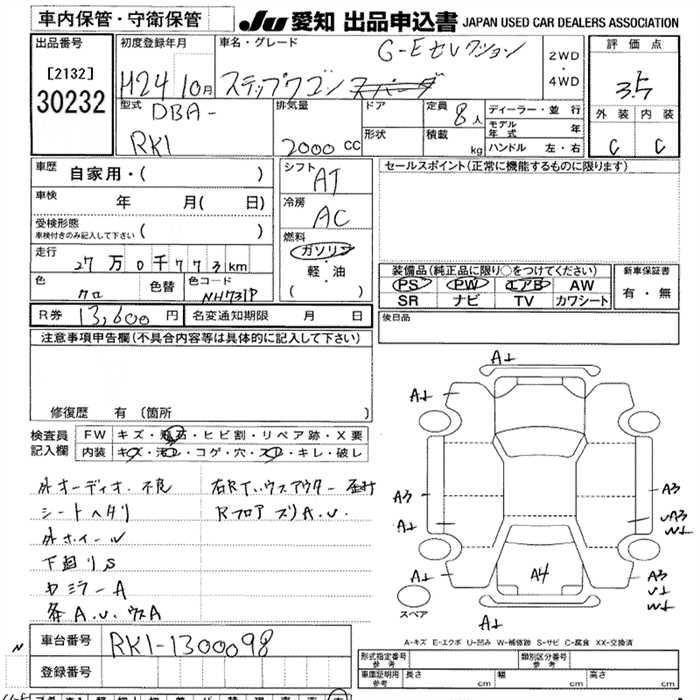 車内保管・守衛保管
JU 愛知 出品申込書 JAPAN USED CAR DEALERS ASSOCIATION
出品番号
[2132]
30232
初度登録年月
H24 10月
車名・グレード
G-Eセレクション
ステップワゴン
2WD
・
4WD
評価点
3.5
外装 内装
C C
型式
DBA-
RK1
排気量
2000 cc
ドア
形状
定員
8人
積載
kg
ディーラー・並行
モデル年式 年
ハンドル 左・右
車歴
自家用・( )
車検
年 月( 日)
受検形態
車検付きのみ記入して下さい ( )
走行
27万0千773km
色
クロ
色替
色コード
NH731P
シフト
AT
冷房
AC
燃料
ガソリン
軽・油
( )
セールスポイント(正常に機能するものに限ります)
装備品(純正品に限り○をつけてください)
PS PW エアB AW
SR ナビ TV カワシート
新車保証書
有・無
後日品
R券 13,600円
名変通知期限 月 日
注意事項申告欄(不具合内容等は具体的に記入して下さい)
修復歴 有 (箇所 )
検査員
記入欄
FW キズ・飛石・ヒビ割・リペア跡・X要
内装 キズ・汚れ・コゲ・穴・スレ・キレ・破レ
外オーディオ・不良
シートヘタリ
外ホイール
下廻りS
カミラーA
各A.U.ウスA
Rフロア ズリA.U.
A1
A1
A1
A3
A3
A1
UA3
W1
A1
A4
A3
U1
W1
A1
スペア
A-キズ E-エクボ U-凹み W-補修跡 S-サビ C-腐食 XX-交換済
車台番号
RK1-1300098
登録番号
形式指定番号
参考
類別区分番号
参考
車庫証明用
参考
長さ cm
幅 cm
高さ cm